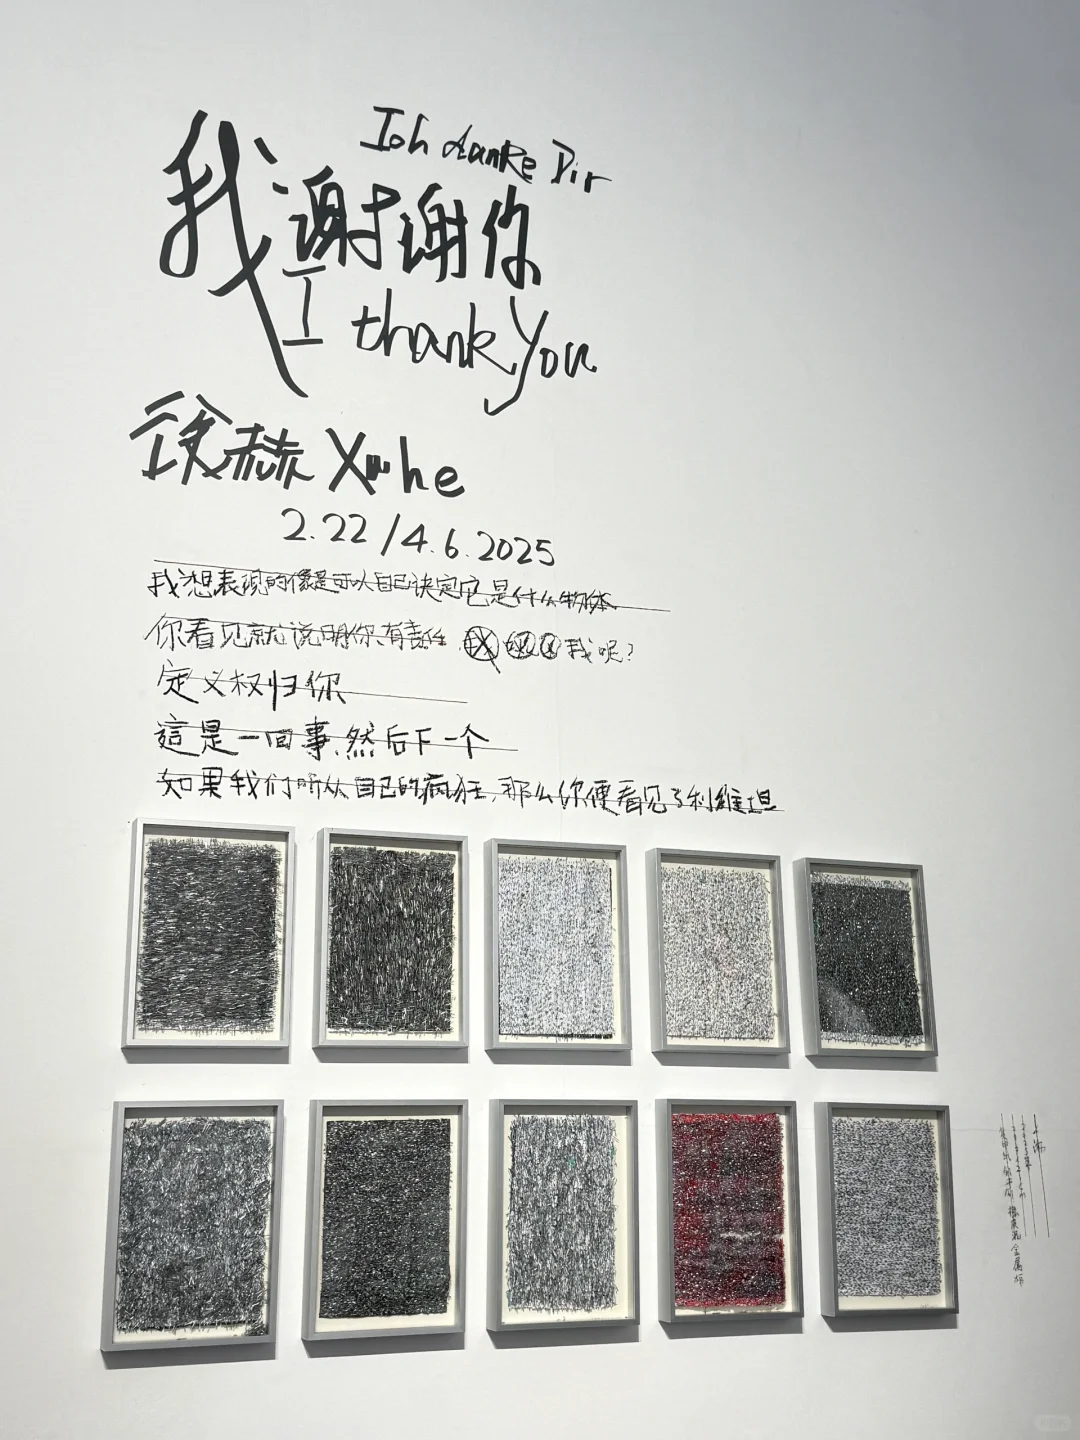 Ich danke Dir
我谢谢你
I thank you
徐赫 Xu he
2.22/4.6.2025
我想表现的像是可以自己决定它是什么物体
你看见就说明你有责任 我呢?
定义权归你
這是一回事,然后下一个
如果我们听从自己的疯狂,那么你便看见了利維坦